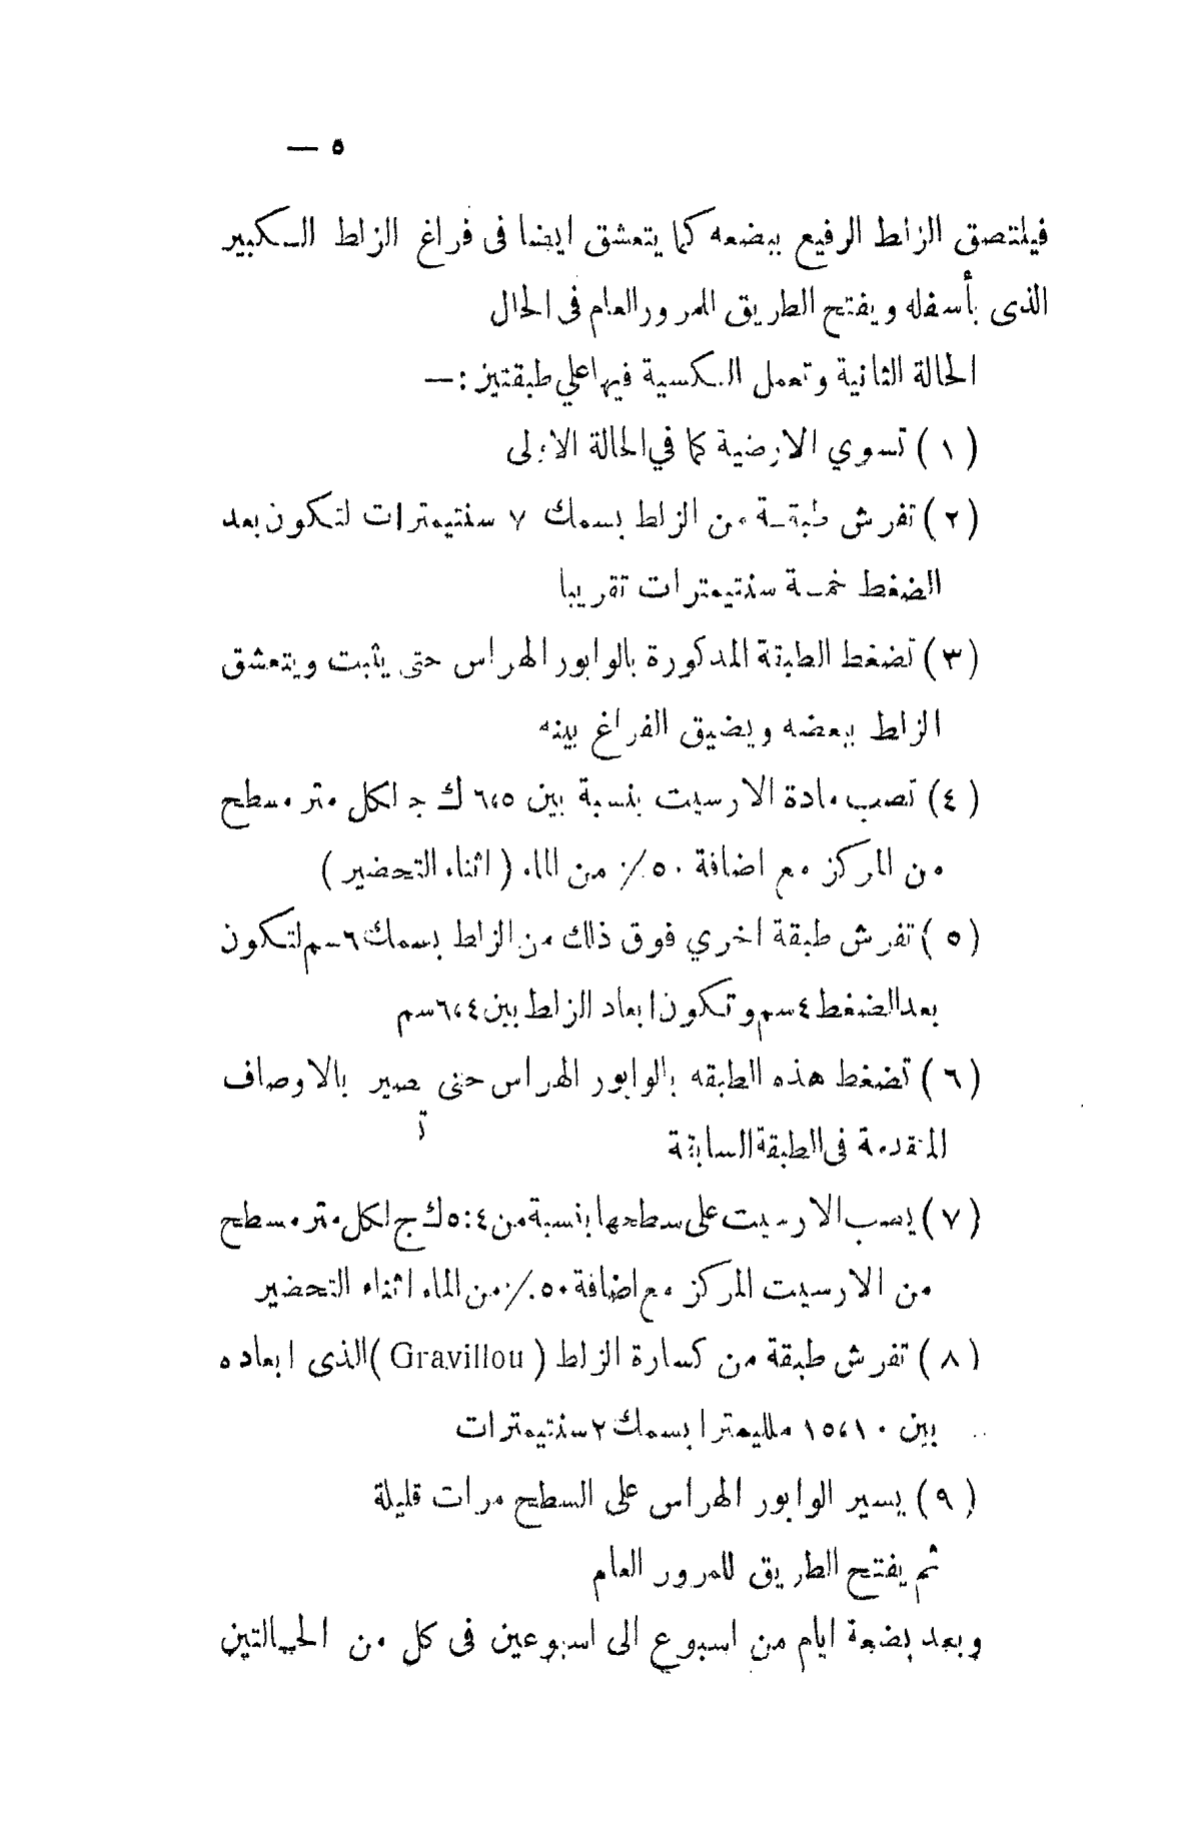 ٥ —
فيلتصق الزلط الرفيع ببضعه كما يتعشق ايضا فى فراغ الزلط الكبير
الذى بأسفله ويفتح الطريق للمرور العام فى الحال
الحالة الثانية وتعمل الكسية فيها علي طبقتين :—
( ١ ) تسوي الارضية كما في الحالة الاولى
( ٢ ) تفرش طبقة من الزلط بسمك ٧ سنتيمترات لتكون بعد
الضغط خمسة سنتيمترات تقريبا
( ٣ ) تضغط الطبقة المدكورة بالوابور الهراس حتى يثبت ويتعشق
الزلط ببعضه ويضيق الفراغ بينه
( ٤ ) تصب مادة الارسيت بنسبة بين ٦،٥ ك ج لكل متر مسطح
من المركز مع اضافة ٥٠ ٪ من الماء ( اثناء التحضير )
( ٥ ) تفرش طبقة اخري فوق ذلك من الزلط بسمك ٦ سم لتكون
بعد الضغط ٤ سم وتكون ابعاد الزلط بين ٦،٤ سم
( ٦ ) تضغط هذه الطبقه بالوابور الهراس حتى تصير بالاوصاف
المتقدمة فى الطبقة السابقة
( ٧ ) يصب الارسيت على سطحها بنسبة من ٤ : ٥ ك ج لكل متر مسطح
من الارسيت المركز مع اضافة ٥٠ ٪ من الماء اثناء التحضير
( ٨ ) تفرش طبقة من كسارة الزلط ( Gravillou ) الذى ابعاده
بين ١٥،١٠ ملليمترا بسمك ٢ سنتيمترات
( ٩ ) يسير الوابور الهراس على السطح مرات قليلة
ثم يفتح الطريق للمرور العام
وبعد بضعة ايام من اسبوع الى اسبوعين فى كل من الحالتين